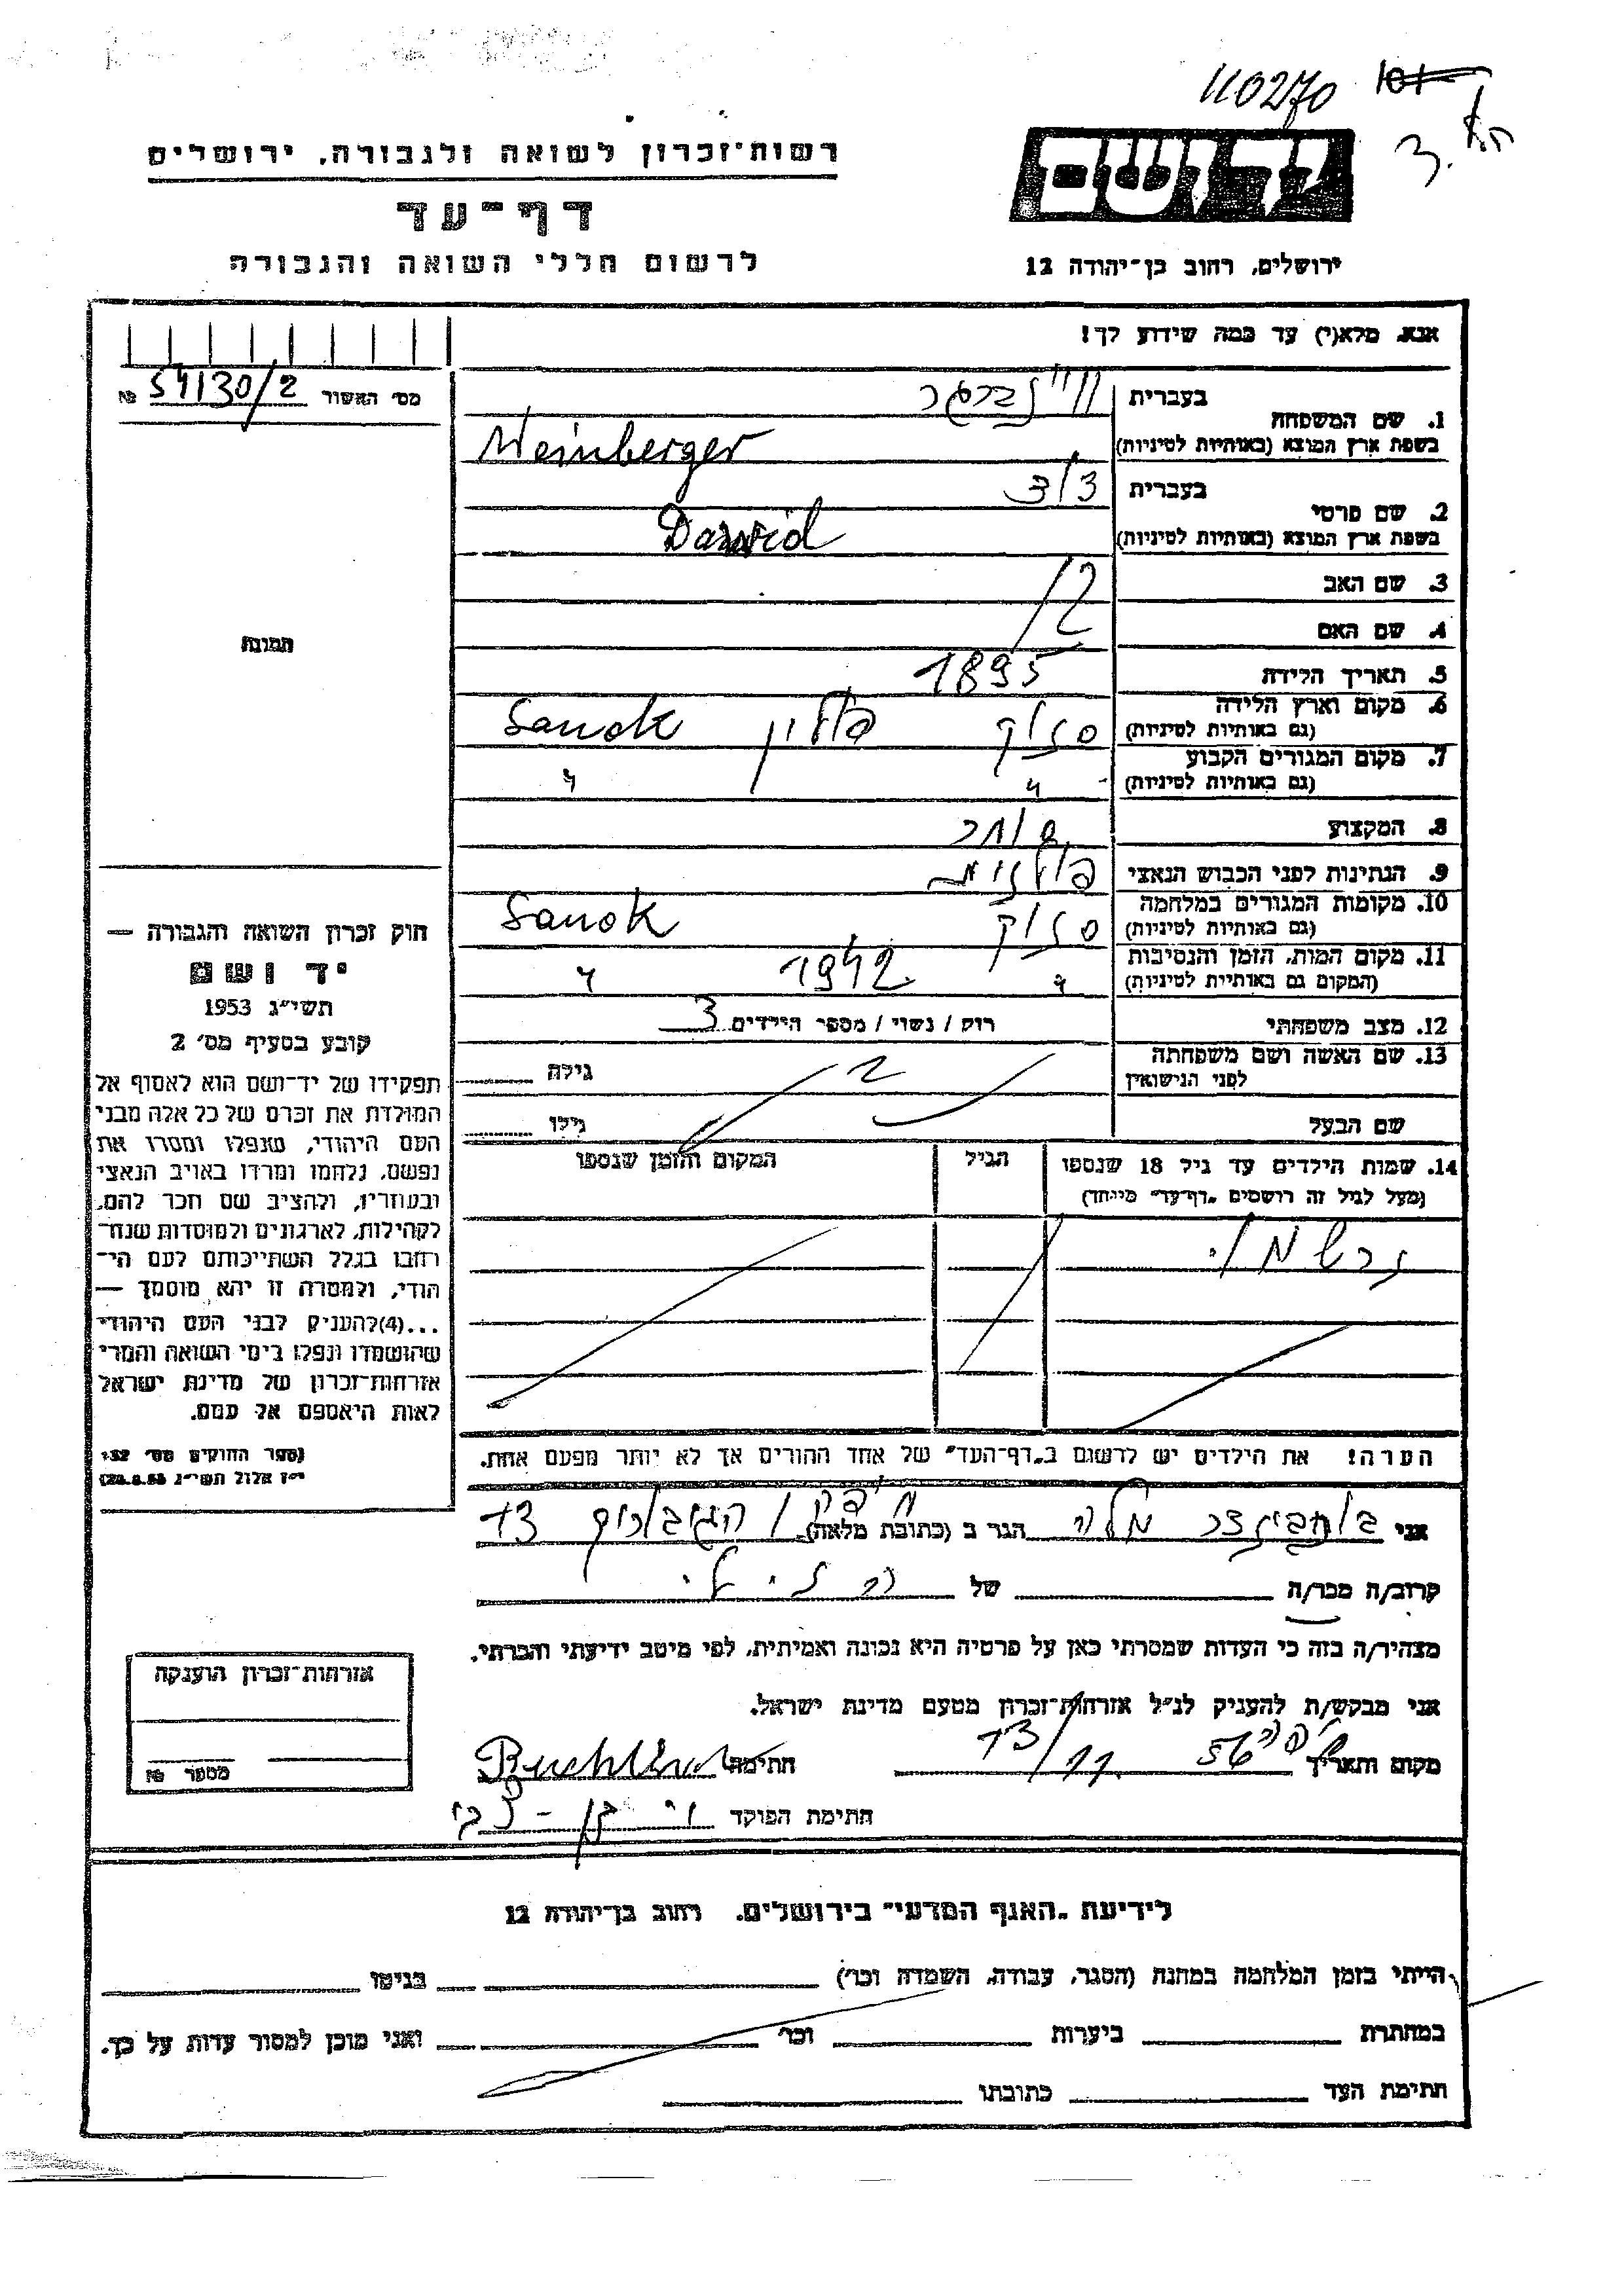 110270
רשות־זכרון לשואה ולגבורה, ירושלים
יד ושם
דף־עד
לרשום חללי השואה והגבורה
ירושלים, רחוב בן־יהודה 12
אנא, מלא(י) עד כמה שידוע לך!
מס׳ האשור 54130/2 №
1. שם המשפחה
בעברית וויינברגר
בשפת ארץ המוצא (באותיות לטיניות) Weinberger
2. שם פרטי
בעברית דוד
בשפת ארץ המוצא (באותיות לטיניות) Dawid
3. שם האב
4. שם האם
תמונה
5. תאריך הלידה 1895
6. מקום וארץ הלידה
(גם באותיות לטיניות) סנוק פולין Sanok
7. מקום המגורים הקבוע
(גם באותיות לטיניות) " "
8. המקצוע סוחר
9. הנתינות לפני הכבוש הנאצי פולנית
10. מקומות המגורים במלחמה
(גם באותיות לטיניות) סנוק Sanok
11. מקום המות, הזמן והנסיבות
(המקום גם באותיות לטיניות) " 1942 "
12. מצב משפחתי רוק / נשוי / מספר הילדים 3
13. שם האשה ושם משפחתה
לפני הנישואין גילה
שם הבעל גילו
14. שמות הילדים עד גיל 18 שנספו הגיל המקום והזמן שנספו
(מעל לגיל זה רושמים „דף־עד״ מיוחד)
נרשמו
הערה! את הילדים יש לרשום ב„דף־העד״ של אחד ההורים אך לא יותר מפעם אחת.
חוק זכרון השואה והגבורה —
יד ושם
תשי״ג 1953
קובע בסעיף מס׳ 2
תפקידו של יד־ושם הוא לאסוף אל
המולדת את זכרם של כל אלה מבני
העם היהודי, שנפלו ומסרו את
נפשם, נלחמו ומרדו באויב הנאצי
ובעוזריו, ולהציב שם וזכר להם,
לקהילות, לארגונים ולמוסדות שנח־
רחבו בגלל השתייכותם לעם הי־
הודי, ולמטרה זו יהא מוסמך —
...(4)להעניק לבני העם היהודי
שהושמדו ונפלו בימי השואה והמרי
אזרחות־זכרון של מדינת ישראל
לאות היאספם אל עמם.
(ספר החוקים מס׳ 132
י״ז אלול תשי״ג 28.8.53)
אני מלה הגר ב (כתובת מלאה) 13
קרוב/ה מכר/ה של
מצהיר/ה בזה כי העדות שמסרתי כאן על פרטיה היא נכונה ואמיתית, לפי מיטב ידיעתי והכרתי.
אני מבקש/ת להעניק לנ״ל אזרחות־זכרון מטעם מדינת ישראל.
מקום ותאריך חיפה 13/11. 56 חתימה
חתימת הפוקד
אזרחות־זכרון הוענקה
מספר №
לידיעת „האגף המדעי״ בירושלים, רחוב בן־יהודה 12
הייתי בזמן המלחמה במחנה (הסגר, עבודה, השמדה וכו׳) בגיטו
במחתרת ביערות וכו׳ ואני מוכן למסור עדות על כך.
חתימת העד כתובתו